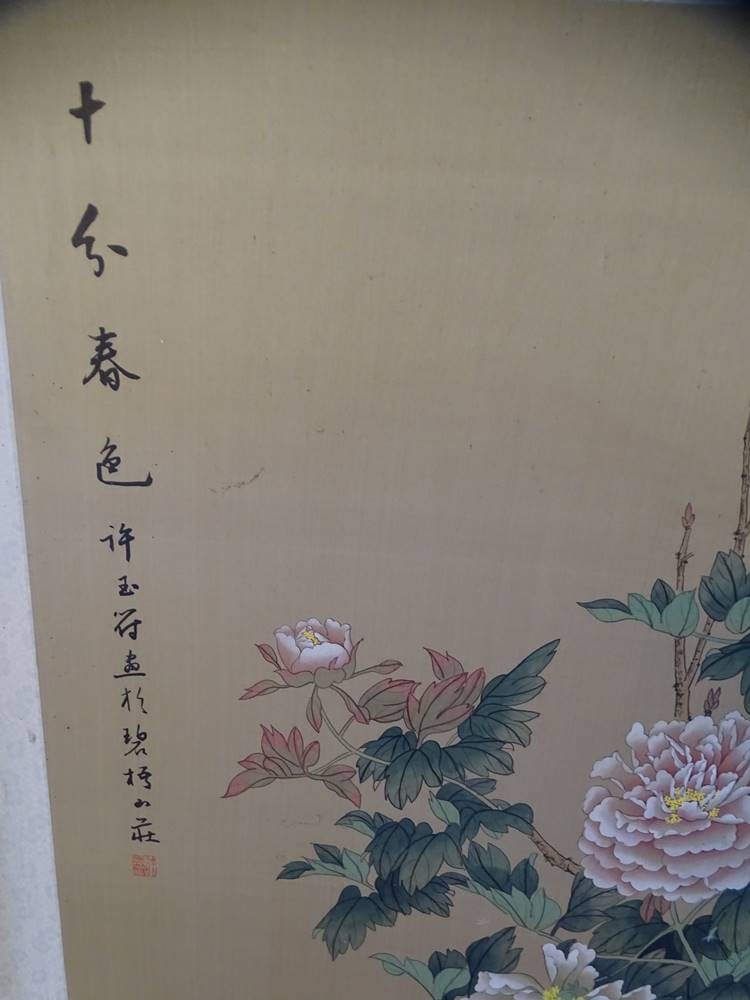 十分春色 许玉符画於碧梧山莊